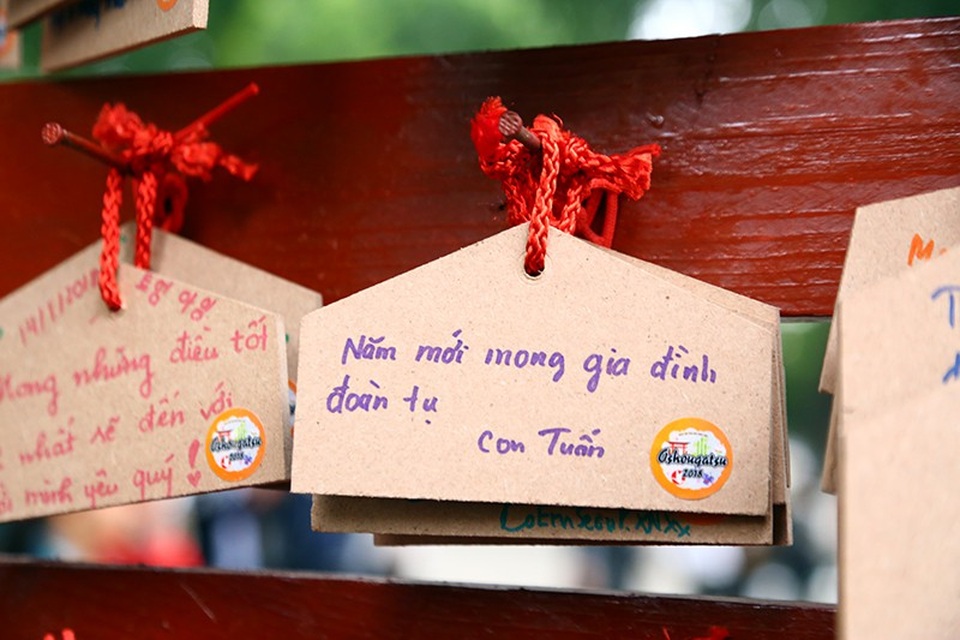 14/1/2018
Mong những điều tốt
nhất sẽ đến với
mình yêu quý !
Năm mới mong gia đình
đoàn tụ
Con Tuấn
Oshougatsu
2018
Oshougatsu
2018